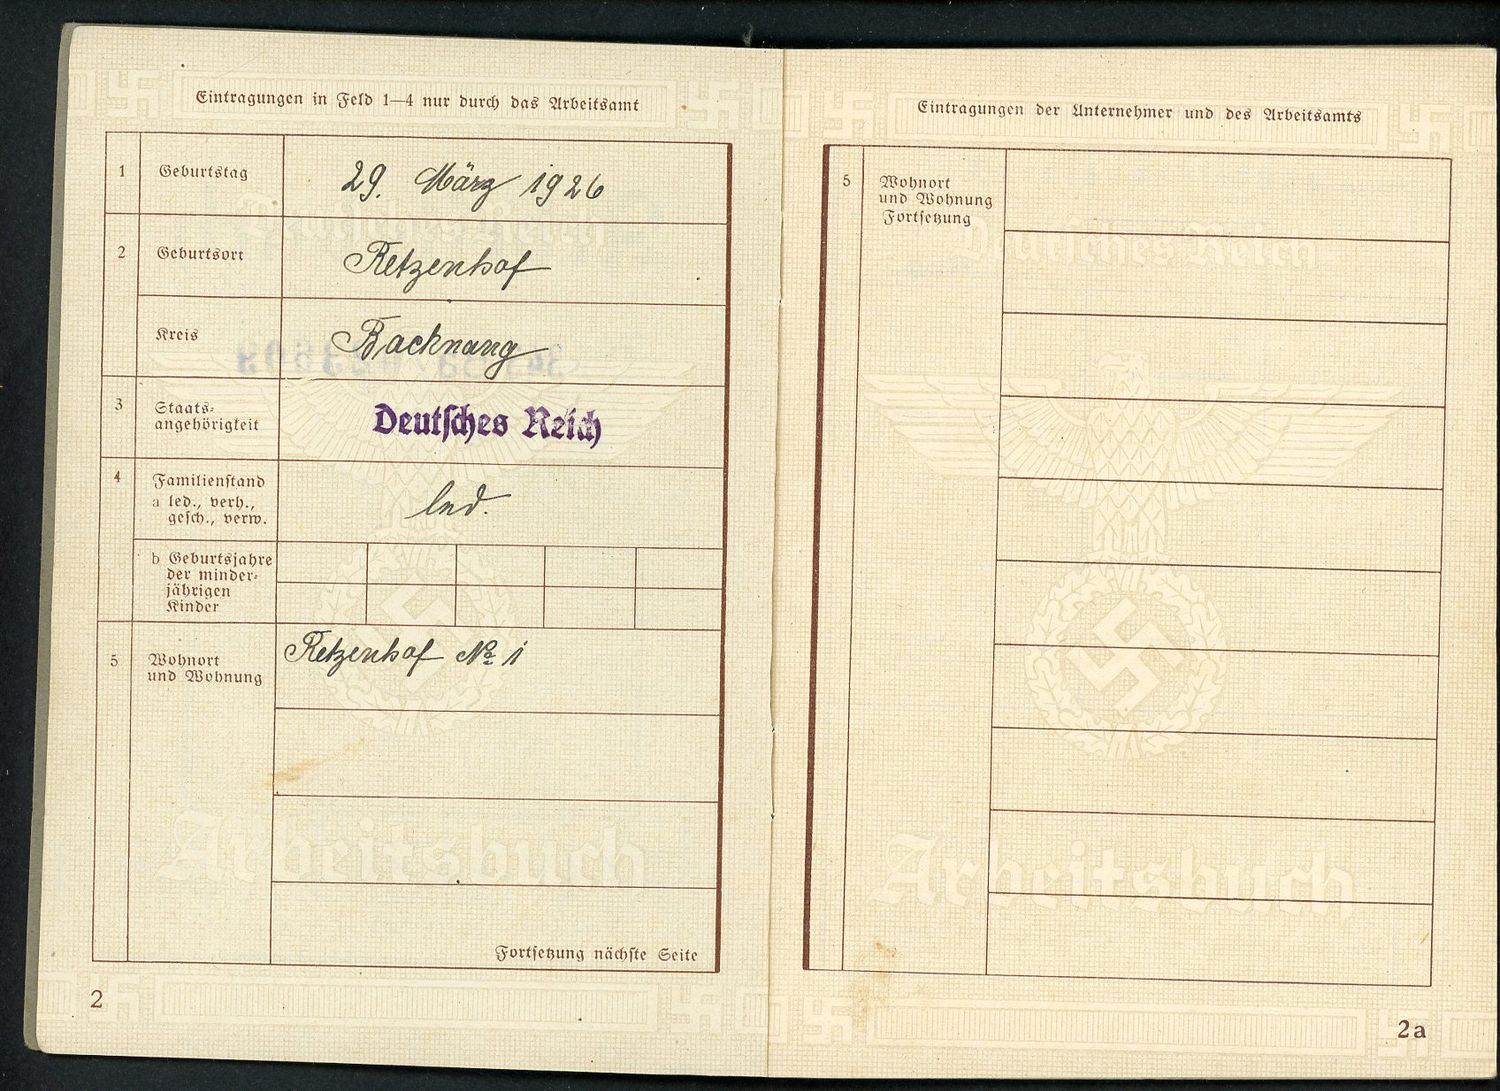 Eintragungen in Feld 1—4 nur durch das Arbeitsamt
1 Geburtstag 29. März 1926
2 Geburtsort Retzenhof
Kreis Backnang
3 Staats-
angehörigkeit Deutsches Reich
4 Familienstand
a led., verh.,
gesch., verw. led.
b Geburtsjahre
der minder-
jährigen
Kinder
5 Wohnort
und Wohnung Retzenhof No 1
Fortsetzung nächste Seite
2
Eintragungen der Unternehmer und des Arbeitsamts
5 Wohnort
und Wohnung
Fortsetzung
2a
Deutsches Reich
Arbeitsbuch
Deutsches Reich
Arbeitsbuch